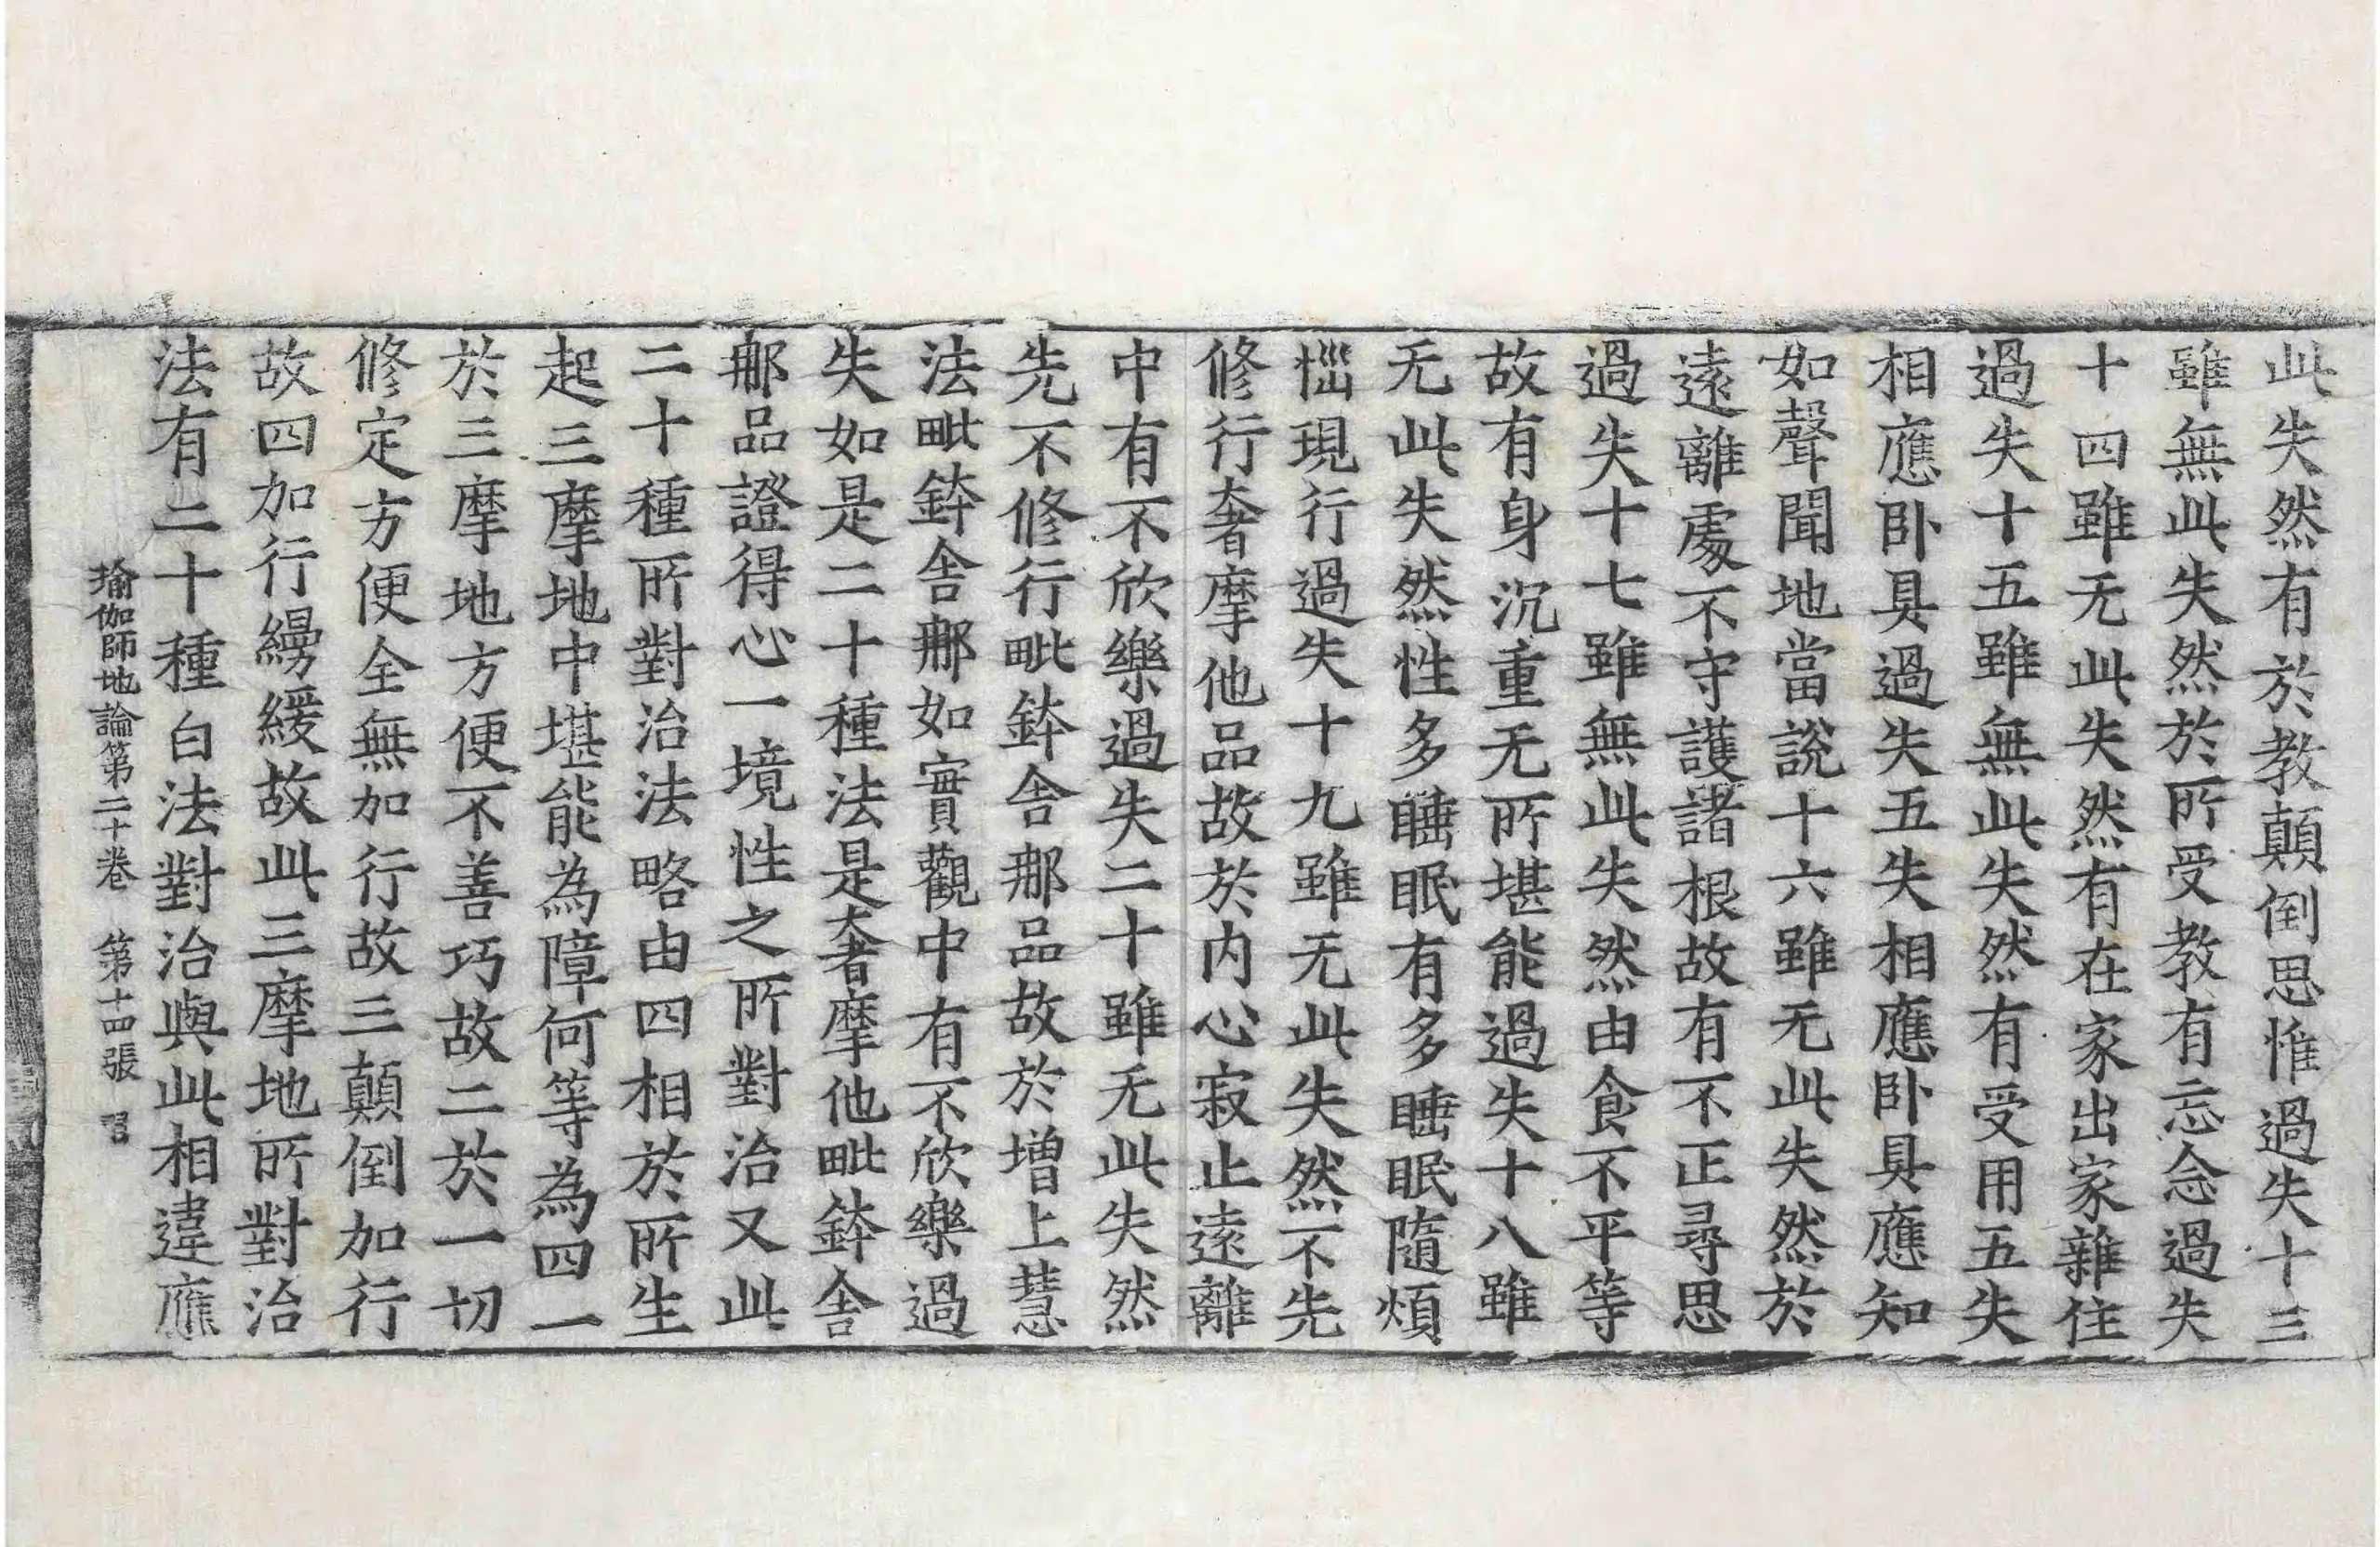 此失然有於教顛倒思惟過失十三
雖無此失然於所受教有忘念過失
十四雖无此失然有在家出家雜住
過失十五雖無此失然有受用五失
相應卧具過失五失相應卧具應知
如聲聞地當說十六雖无此失然於
遠離處不守護諸根故有不正尋思
過失十七雖無此失然由食不平等
故有身沉重无所堪能過失十八雖
无此失然性多睡眠有多睡眠隨煩
惱現行過失十九雖无此失然不先
修行奢摩他品故於内心寂止遠離
中有不欣樂過失二十雖无此失然
先不修行毗鉢舍那品故於增上慧
法毗鉢舍那如實觀中有不欣樂過
失如是二十種法是奢摩他毗鉢舍
那品證得心一境性之所對治又此
二十種所對治法略由四相於所生
起三摩地中堪能為障何等為四一
於三摩地方便不善巧故二於一切
修定方便全無加行故三顛倒加行
故四加行縵緩故此三摩地所對治
法有二十種白法對治與此相違應
瑜伽師地論第二十卷　第十四張